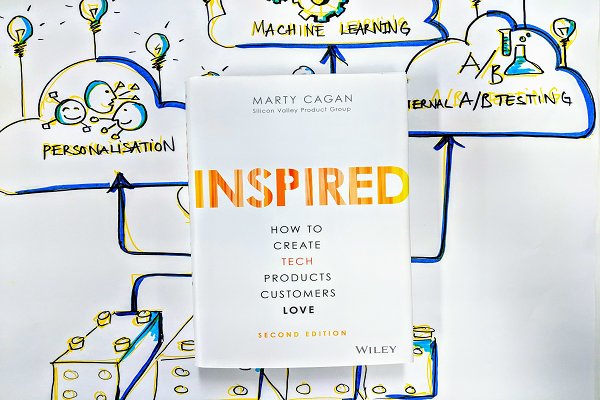 MACHINE LEARNING
A/B
A/B TESTING
PERSONALISATION
MARTY CAGAN
Silicon Valley Product Group
INSPIRED
HOW TO
CREATE
TECH
PRODUCTS
CUSTOMERS
LOVE
SECOND EDITION
WILEY